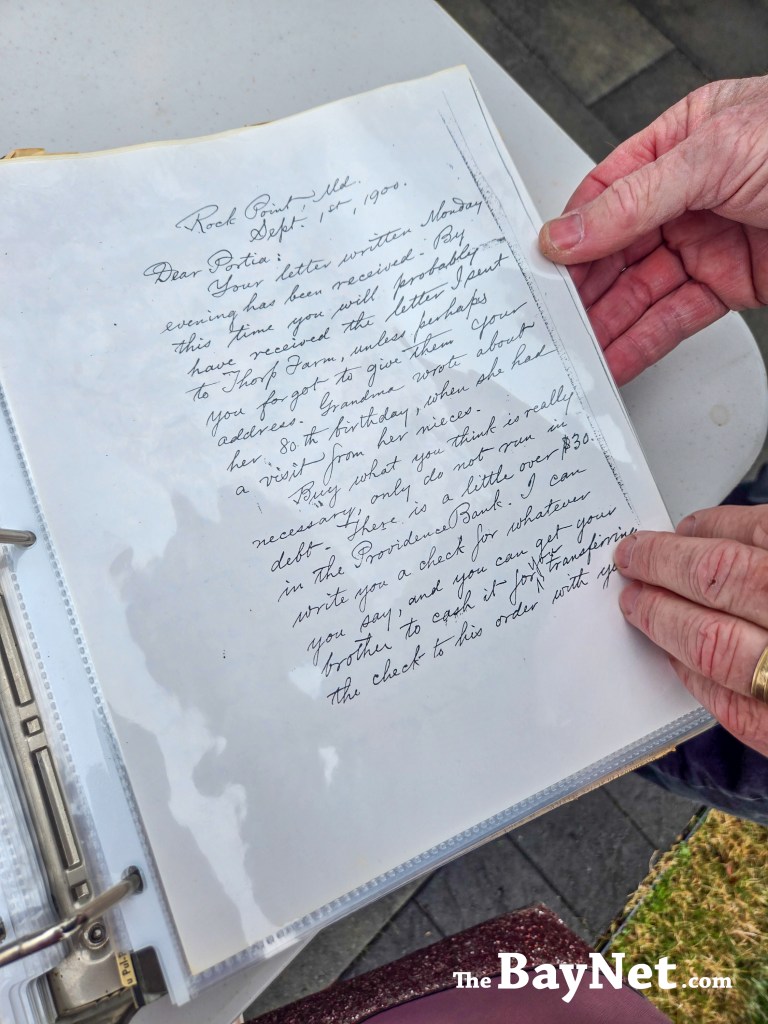 Rock Point, Md.
Sept. 1st, 1900.
Dear Portia:
Your letter written Monday
evening has been received. By
this time you will probably
have received the letter I sent
to Thorp Farm, unless perhaps
you forgot to give them your
address. Grandma wrote about
her 80th birthday, when she had
a visit from her nieces.
Buy what you think is really
necessary, only do not run in
debt. There is a little over $30.
in the Providence Bank. I can
write you a check for whatever
you say, and you can get your
brother to cash it for you transferring
the check to his order with
The BayNet.com